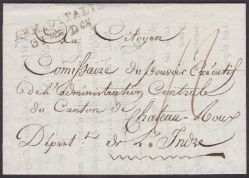 ARM. D'ITALIE
D.on
du Citoyen
Comissaire du pouvoir Exécutif
de l'administration Centrale
du Canton de
Chateau-Roux
Départ.t de L'Indre